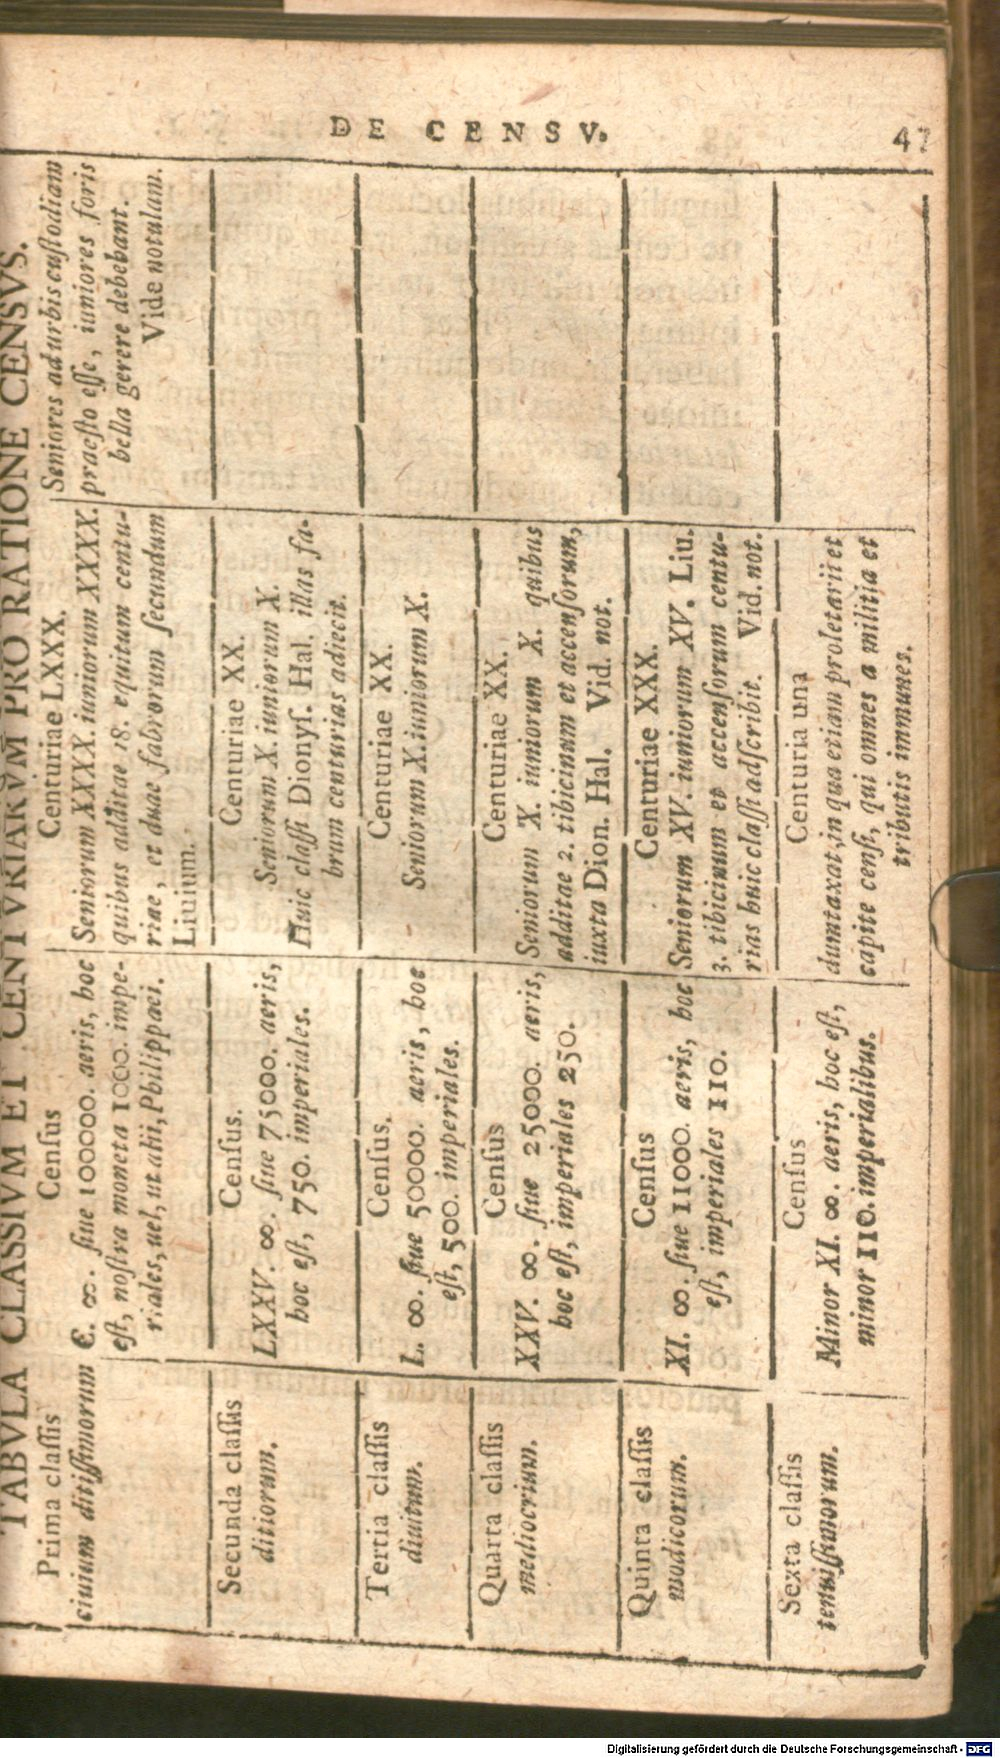 DE CENSV. 47
TABVLA CLASSIVM ET CENTVRIARVM PRO RATIONE CENSVS.
Prima claſſis
ciuium ditiſſimorum
Cenſus
C. ∞. ſiue 100000. aeris, hoc
eſt, noſtra moneta 1000. impe-
riales, uel, ut alii, Philippaei.
Centuriae LXXX.
Seniorum XXXX. iuniorum XXXX.
quibus additae 18. equitum centu-
riae, et duae fabrorum ſecundum
Liuium.
Seniores ad urbis cuſtodiam
praeſto eſſe, iuniores foris
bella gerere debebant.
Vide notulam.
Secunda claſſis
ditiorum.
Cenſus.
LXXV. ∞. ſiue 75000. aeris,
hoc eſt, 750. imperiales.
Centuriae XX.
Seniorum X. iuniorum X.
Huic claſſi Dionyſ. Hal. illas fa-
brum centurias adiecit.
Tertia claſſis
diuitum.
Cenſus.
L. ∞. ſiue 50000. aeris, hoc
eſt, 500. imperiales.
Centuriae XX.
Seniorum X. iuniorum X.
Quarta claſſis
mediocrium.
Cenſus
XXV. ∞. ſiue 25000. aeris,
hoc eſt, imperiales 250.
Centuriae XX.
Seniorum X. iuniorum X. quibus
additae 2. tibicinum et accenſorum,
iuxta Dion. Hal. Vid. not.
Quinta claſſis
modicorum.
Cenſus
XI. ∞. ſiue 11000. aeris, hoc
eſt, imperiales 110.
Centuriae XXX.
Seniorum XV. iuniorum XV. Liu.
3. tibicinum et accenſorum centu-
rias huic claſſi adſcribit. Vid. not.
Sexta claſſis
tenuiſſimorum.
Cenſus
Minor XI. ∞. aeris, hoc eſt,
minor 110. imperialibus.
Centuria una
dumtaxat, in qua etiam proletarii et
capite cenſi, qui omnes a militia et
tributis immunes.
Digitalisierung gefördert durch die Deutsche Forschungsgemeinschaft - DFG